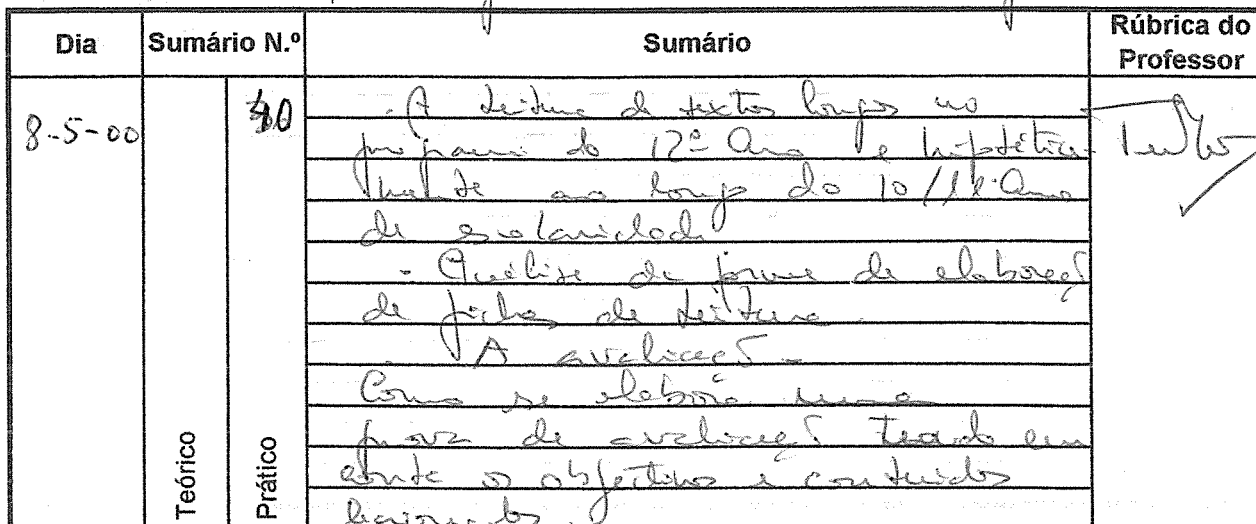 Dia Sumário N.º Sumário Rúbrica do Professor
8-5-00 40 - A leitura de textos longos no
programa do 12º Ano e hipotética-
mente ao longo do 10/11º Ano
de escolaridade
- Análise da forma de elaboraç
de fichas de leitura.
- A avaliaç -
Como se elabora uma
prova de avaliaç tendo em
conta os objectivos e conteúdos
leccionados.
Teórico
Prático